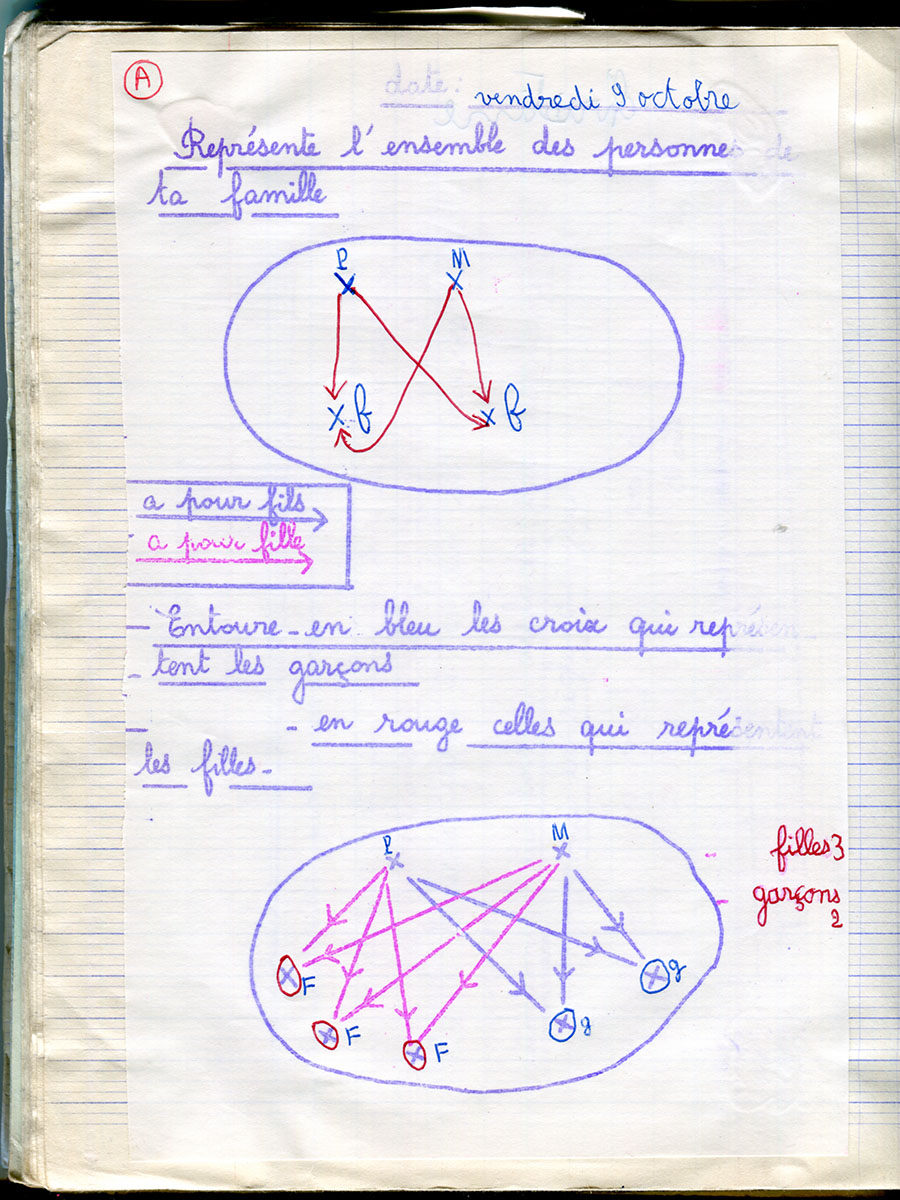 A
date :
vendredi 9 octobre
Représente l'ensemble des personnes de
ta famille
P M
f f
a pour fils
a pour fille
- Entoure - en bleu les croix qui représen-
tent les garçons
- en rouge celles qui représentent
les filles -
P M
filles 3
garçons
2
F g
F F g